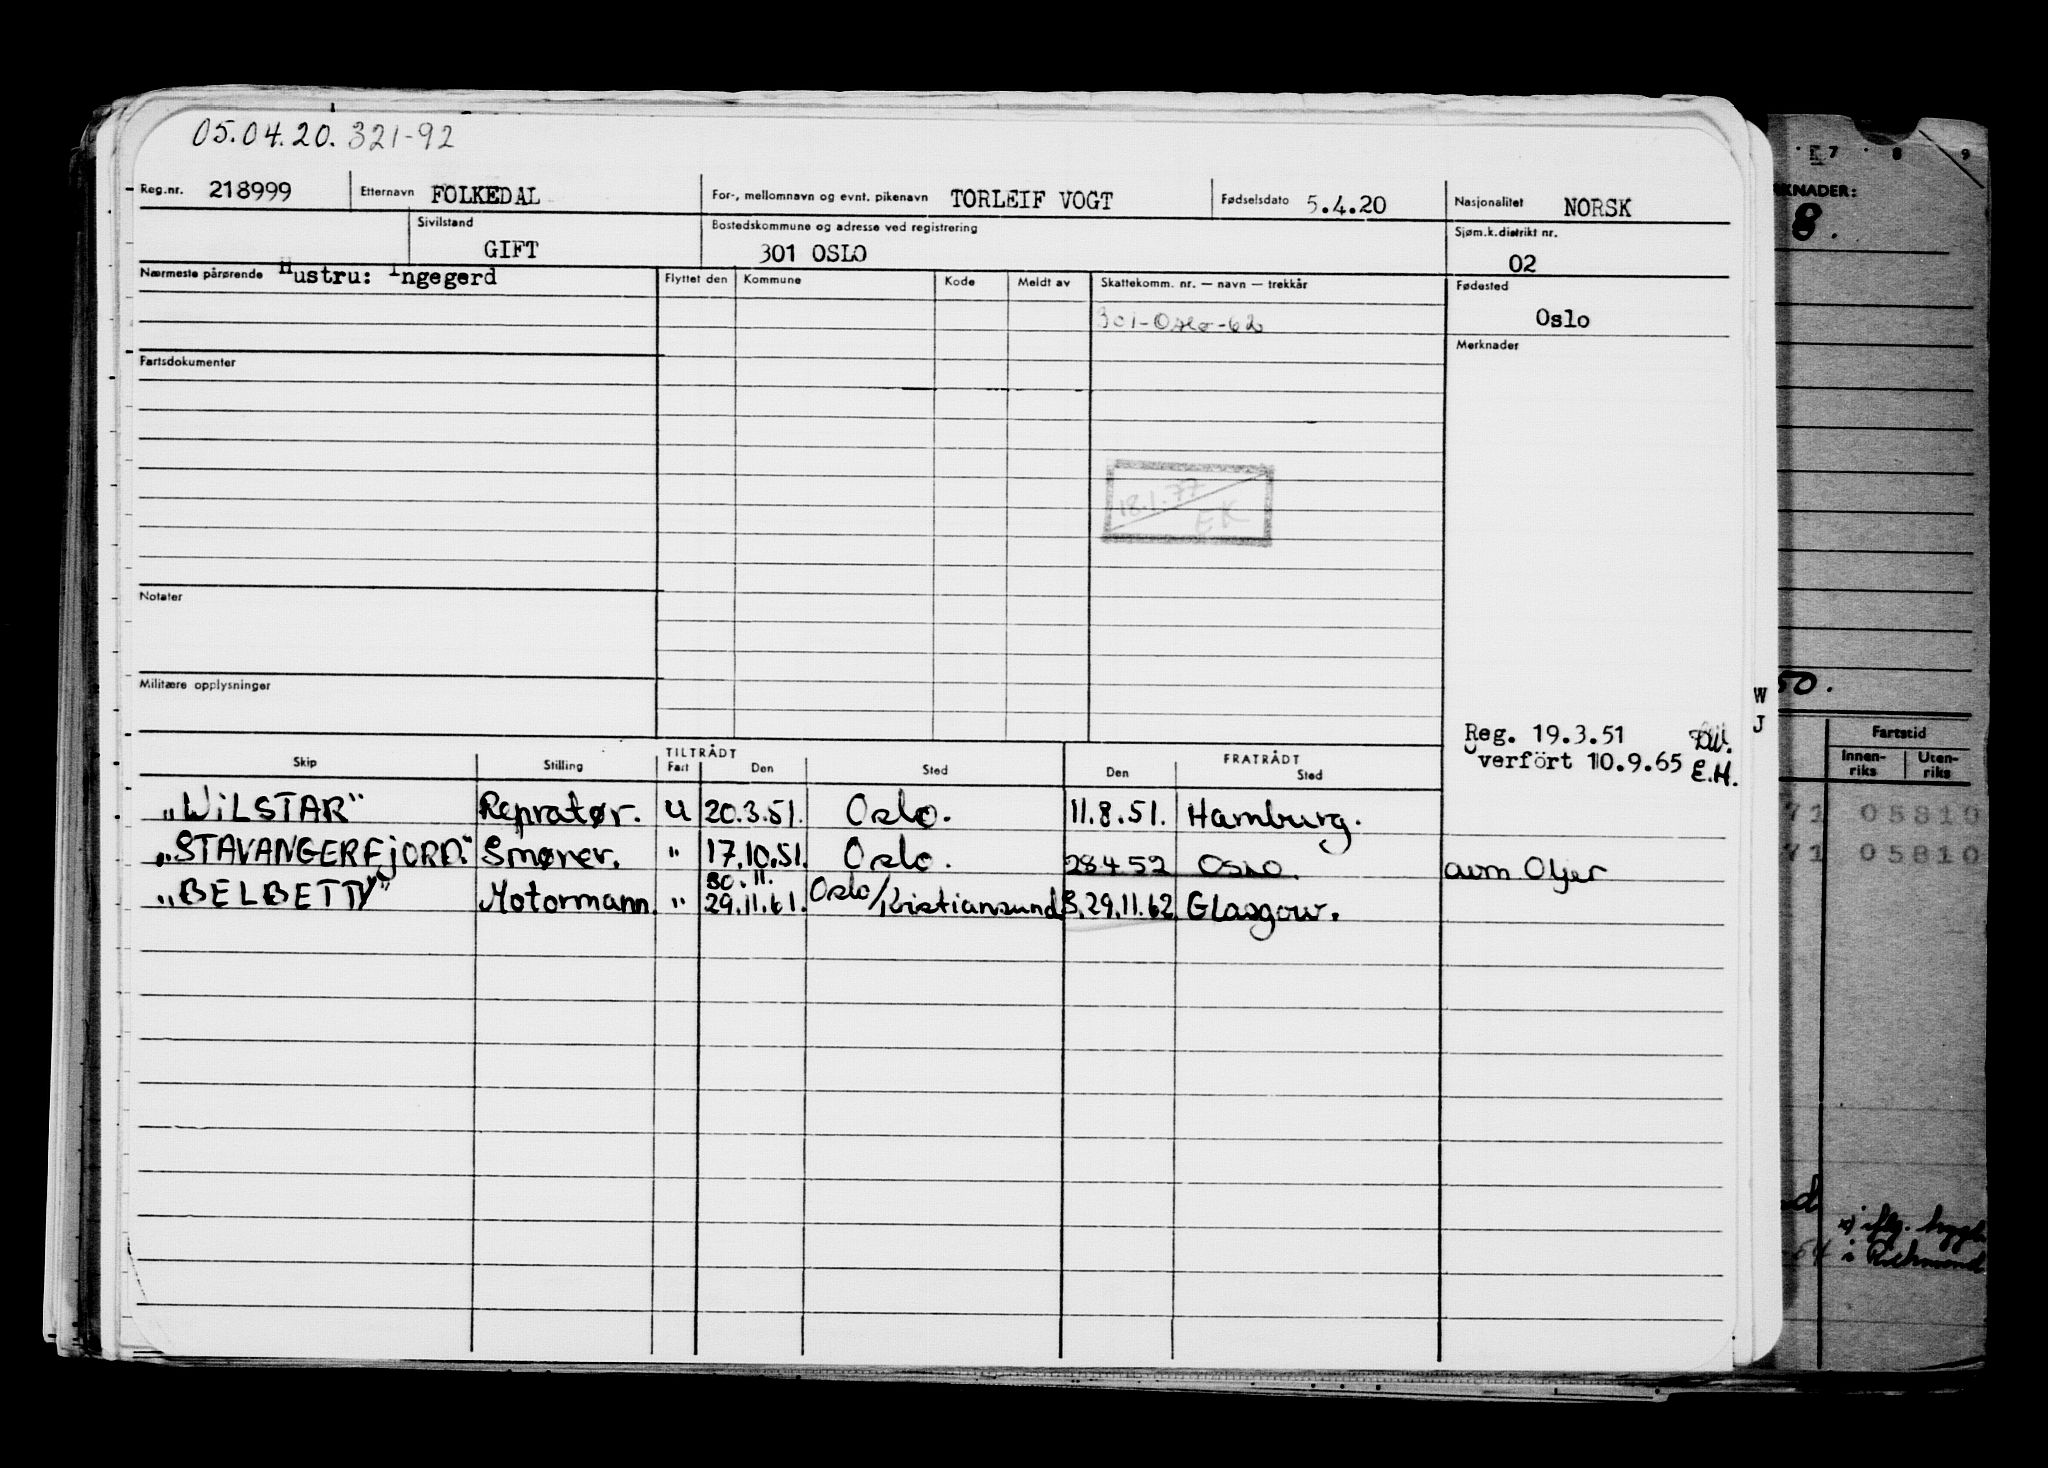 05.04.20. 321-92
Reg.nr. 218999 Etternavn FOLKEDAL For-, mellomnavn og evnt. pikenavn TORLEIF VOGT Fødselsdato 5.4.20 Nasjonalitet NORSK
Sivilstand GIFT Bostedskommune og adresse ved registrering 301 OSLO Sjøm.k.distrikt nr. 02
Nærmeste pårørende Hustru: Ingegerd Flyttet den Kommune Kode Meldt av Skattekomm. nr. — navn — trekkår Fødested
301-Oslo-62 Oslo
Fartsdokumenter Merknader
18.1.77
EK
Notater
Militære opplysninger
Reg. 19.3.51
Overført 10.9.65 E.H.
W
J
TILTRÅDT FRATRÅDT
Skip Stilling Fart Den Sted Den Sted
„WILSTAR" Repratør. U 20.3.51. Oslo. 11.8.51. Hamburg.
„STAVANGERFJORD." Smører. " 17.10.51. Oslo. 28452 Oslo.
30.11.
„BELBETTY" Motormann. " 29.11.61. Oslo/Kristiansund 29.11.62. Glasgow.
7 8 9
KNADER:
8.
50.
Fartstid
Innen-
riks
Uten-
riks
71 05810
71 05810
i Richmond